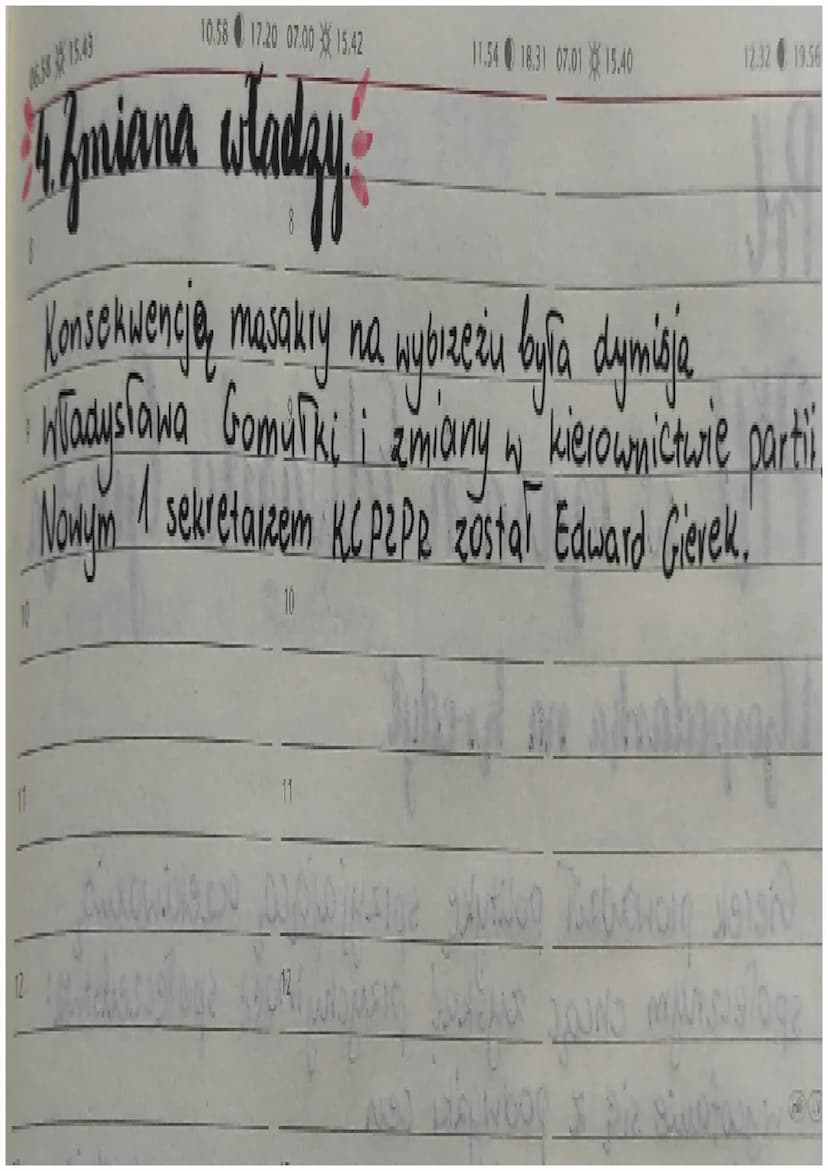 06.58 15.43 10.58 17.20 07.00 15.42 11.54 18.31 07.01 15.40 12.32 19.56
4. Zmiana władzy.
8 8
Konsekwencją masakry na wybrzeżu była dymisja
9 9
Władysława Gomułki i zmiany w kierownictwie partii.
Nowym 1 sekretarzem KC PZPR został Edward Gierek.
10 10
11 11
12 12